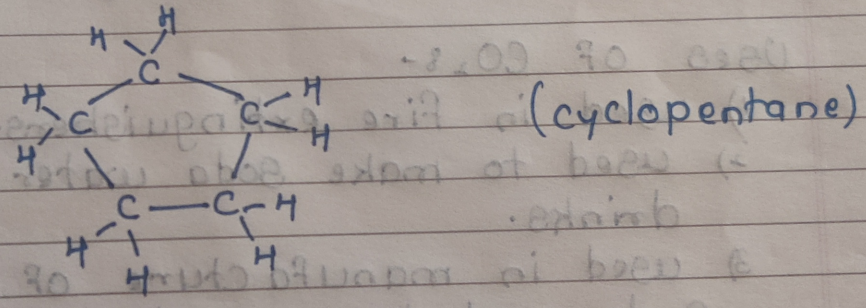 H H
C
H C H C H
H
C — C - H
H H H
(cyclopentane)